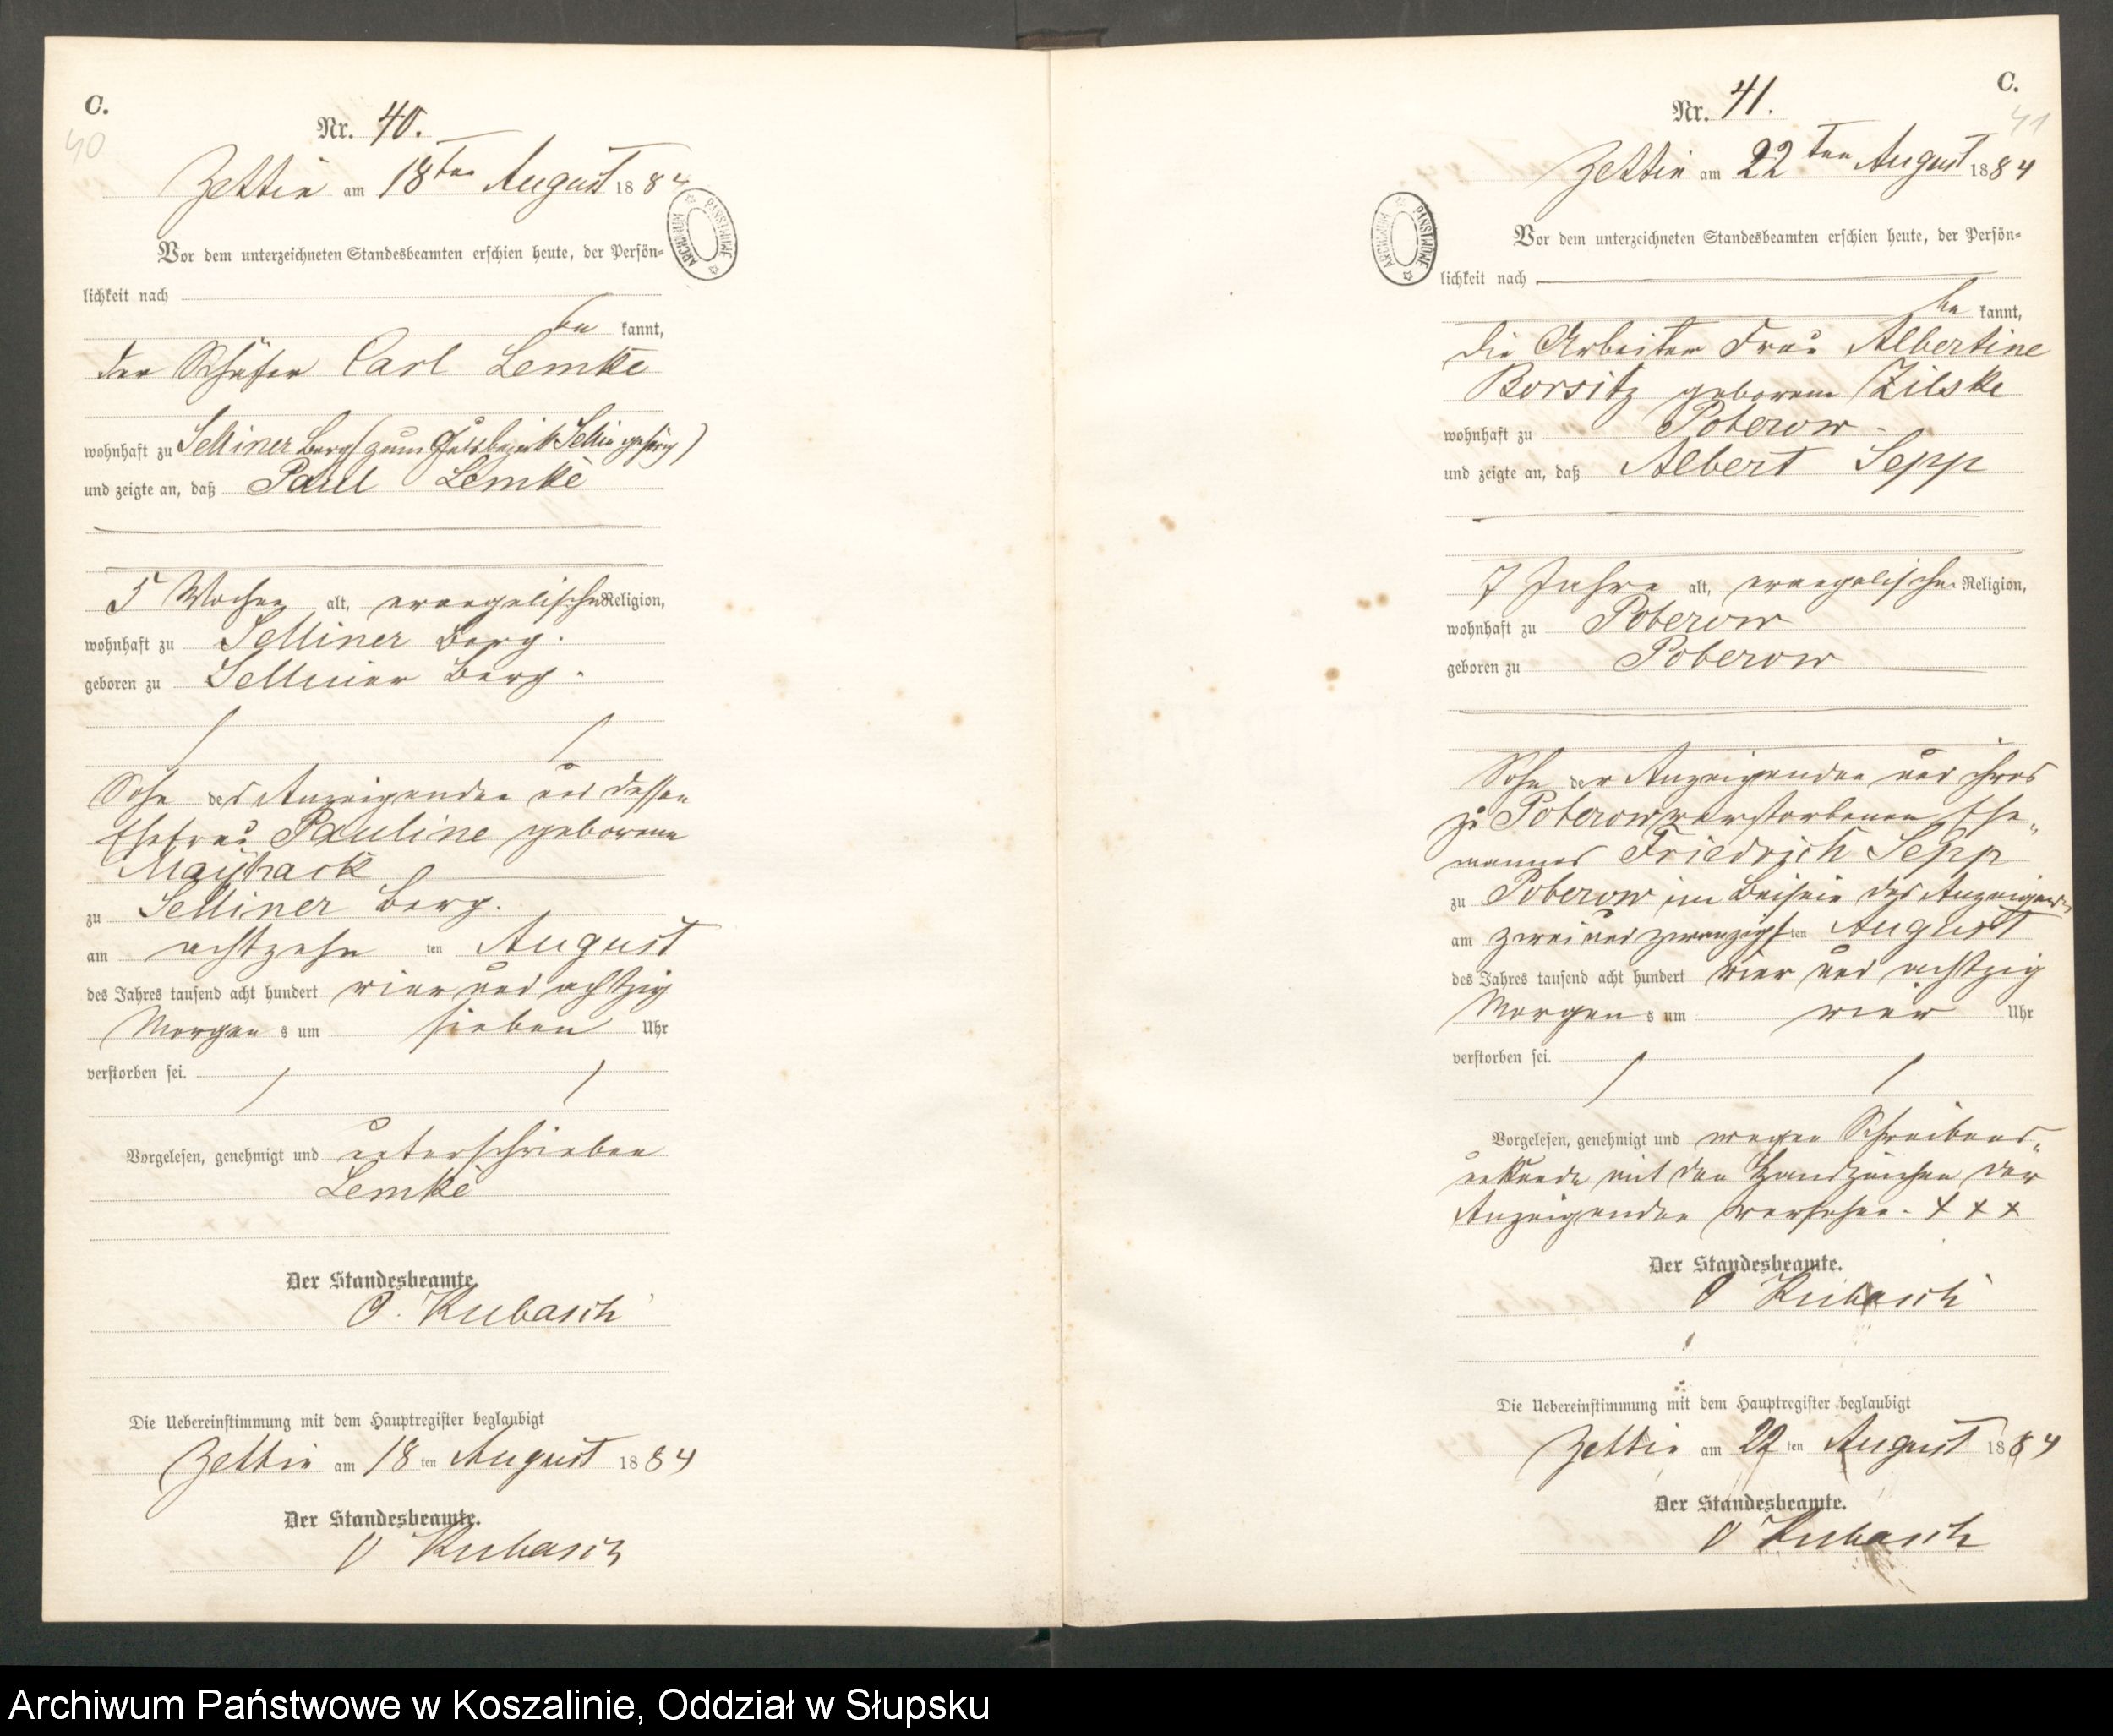 C.
40
Nr. 40.
Zettin am 18ten August 1884
Vor dem unterzeichneten Standesbeamten erschien heute, der Persön-
lichkeit nach
be kannt,
der Schäfer Carl Lemke
wohnhaft zu Selliner Berg (zum Gutsbezirk Sellin gehörig)
und zeigte an, daß Paul Lemke
5 Wochen alt, evangelischer Religion,
wohnhaft zu Selliner Berg.
geboren zu Selliner Berg.
Sohn des Anzeigenden und dessen
Ehefrau Pauline geborene
zu Selliner Berg.
am achtzehn ten August
des Jahres tausend acht hundert vier und achtzig
Morgen s um sieben Uhr
verstorben sei.
Vorgelesen, genehmigt und unterschrieben
Lemke
Der Standesbeamte.
O. Kubasch
Die Uebereinstimmung mit dem Hauptregister beglaubigt
Zettin am 18 ten August 1884
Der Standesbeamte.
O Kubasch
ARCHIWUM PAŃSTWOWE
C.
41
Nr. 41.
Zettin am 22ten August 1884
ARCHIWUM PAŃSTWOWE
Vor dem unterzeichneten Standesbeamten erschien heute, der Persön-
lichkeit nach
be kannt,
die Arbeiter Frau Albertine
Borsitz geborene Zilske
wohnhaft zu Poberow
und zeigte an, daß Albert Sepp
7 Jahre alt, evangelischer Religion,
wohnhaft zu Poberow
geboren zu Poberow
Sohn der Anzeigenden und ihres
zu Poberow verstorbenen Ehe-
mannes Friedrich Sepp
zu Poberow im Beisein des Anzeigenden
am zwei und zwanzigsten August
des Jahres tausend acht hundert vier und achtzig
Morgen s um vier Uhr
verstorben sei.
Vorgelesen, genehmigt und wegen Schreibens-
unkunde mit den Handzeichen der
Anzeigenden versehen. + + +
Der Standesbeamte.
O Kubasch
Die Uebereinstimmung mit dem Hauptregister beglaubigt
Zettin am 22 ten August 1884
Der Standesbeamte.
O Kubasch
Archiwum Państwowe w Koszalinie, Oddział w Słupsku